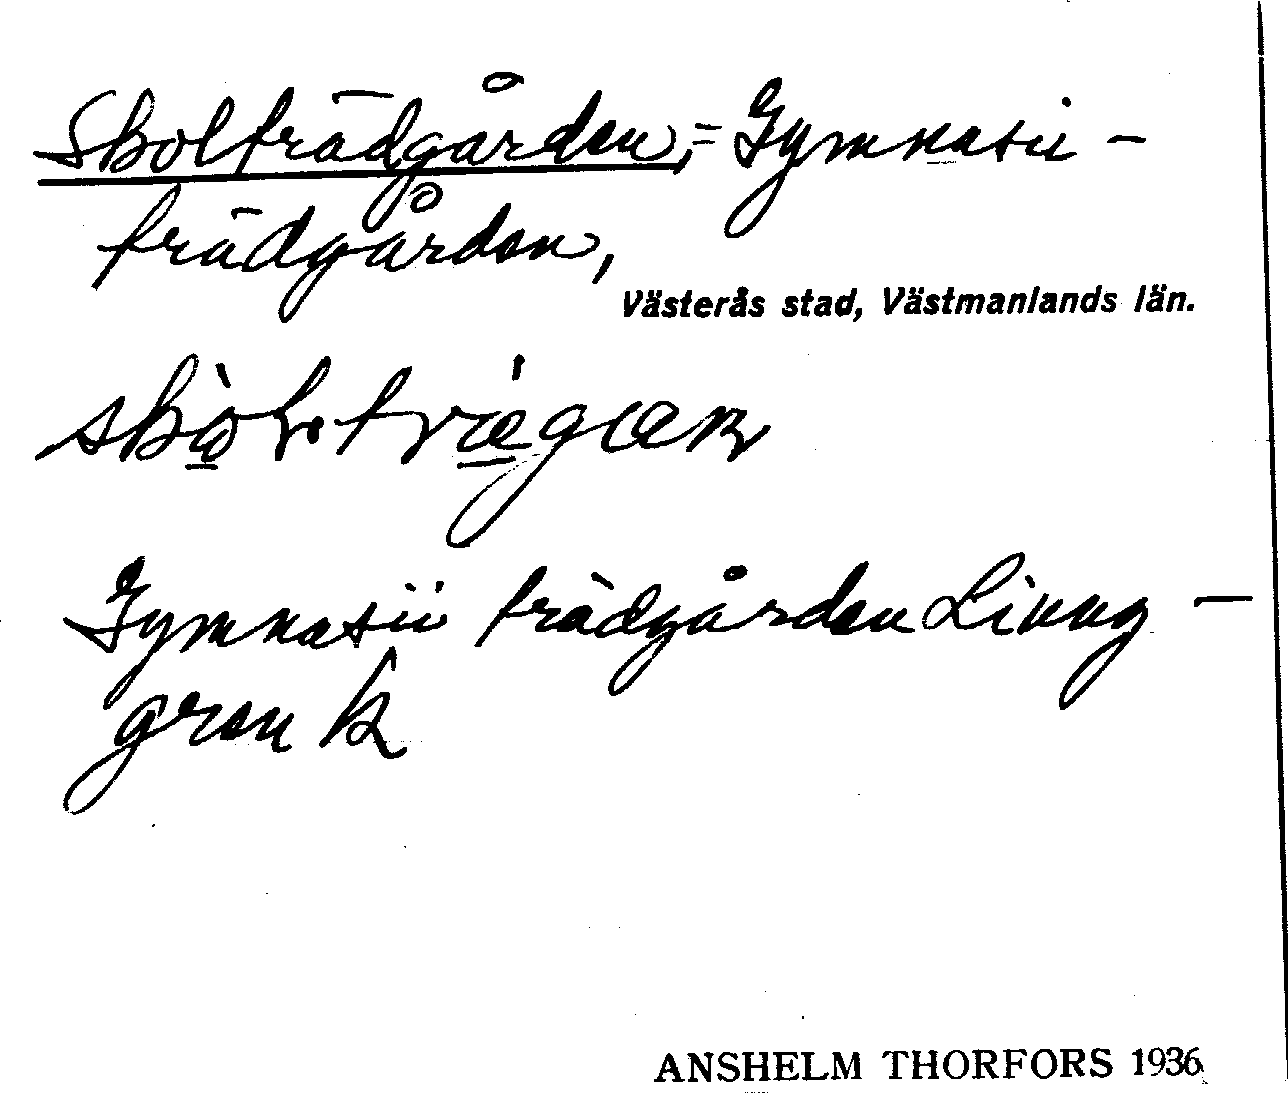 Skolträdgården, = Gymnasii-
trädgården,
Västerås stad, Västmanlands län.
skò̱l·trǽ̱gɑɴ
Gymnasii trädgården Linng-
gren k
ANSHELM THORFORS 1936